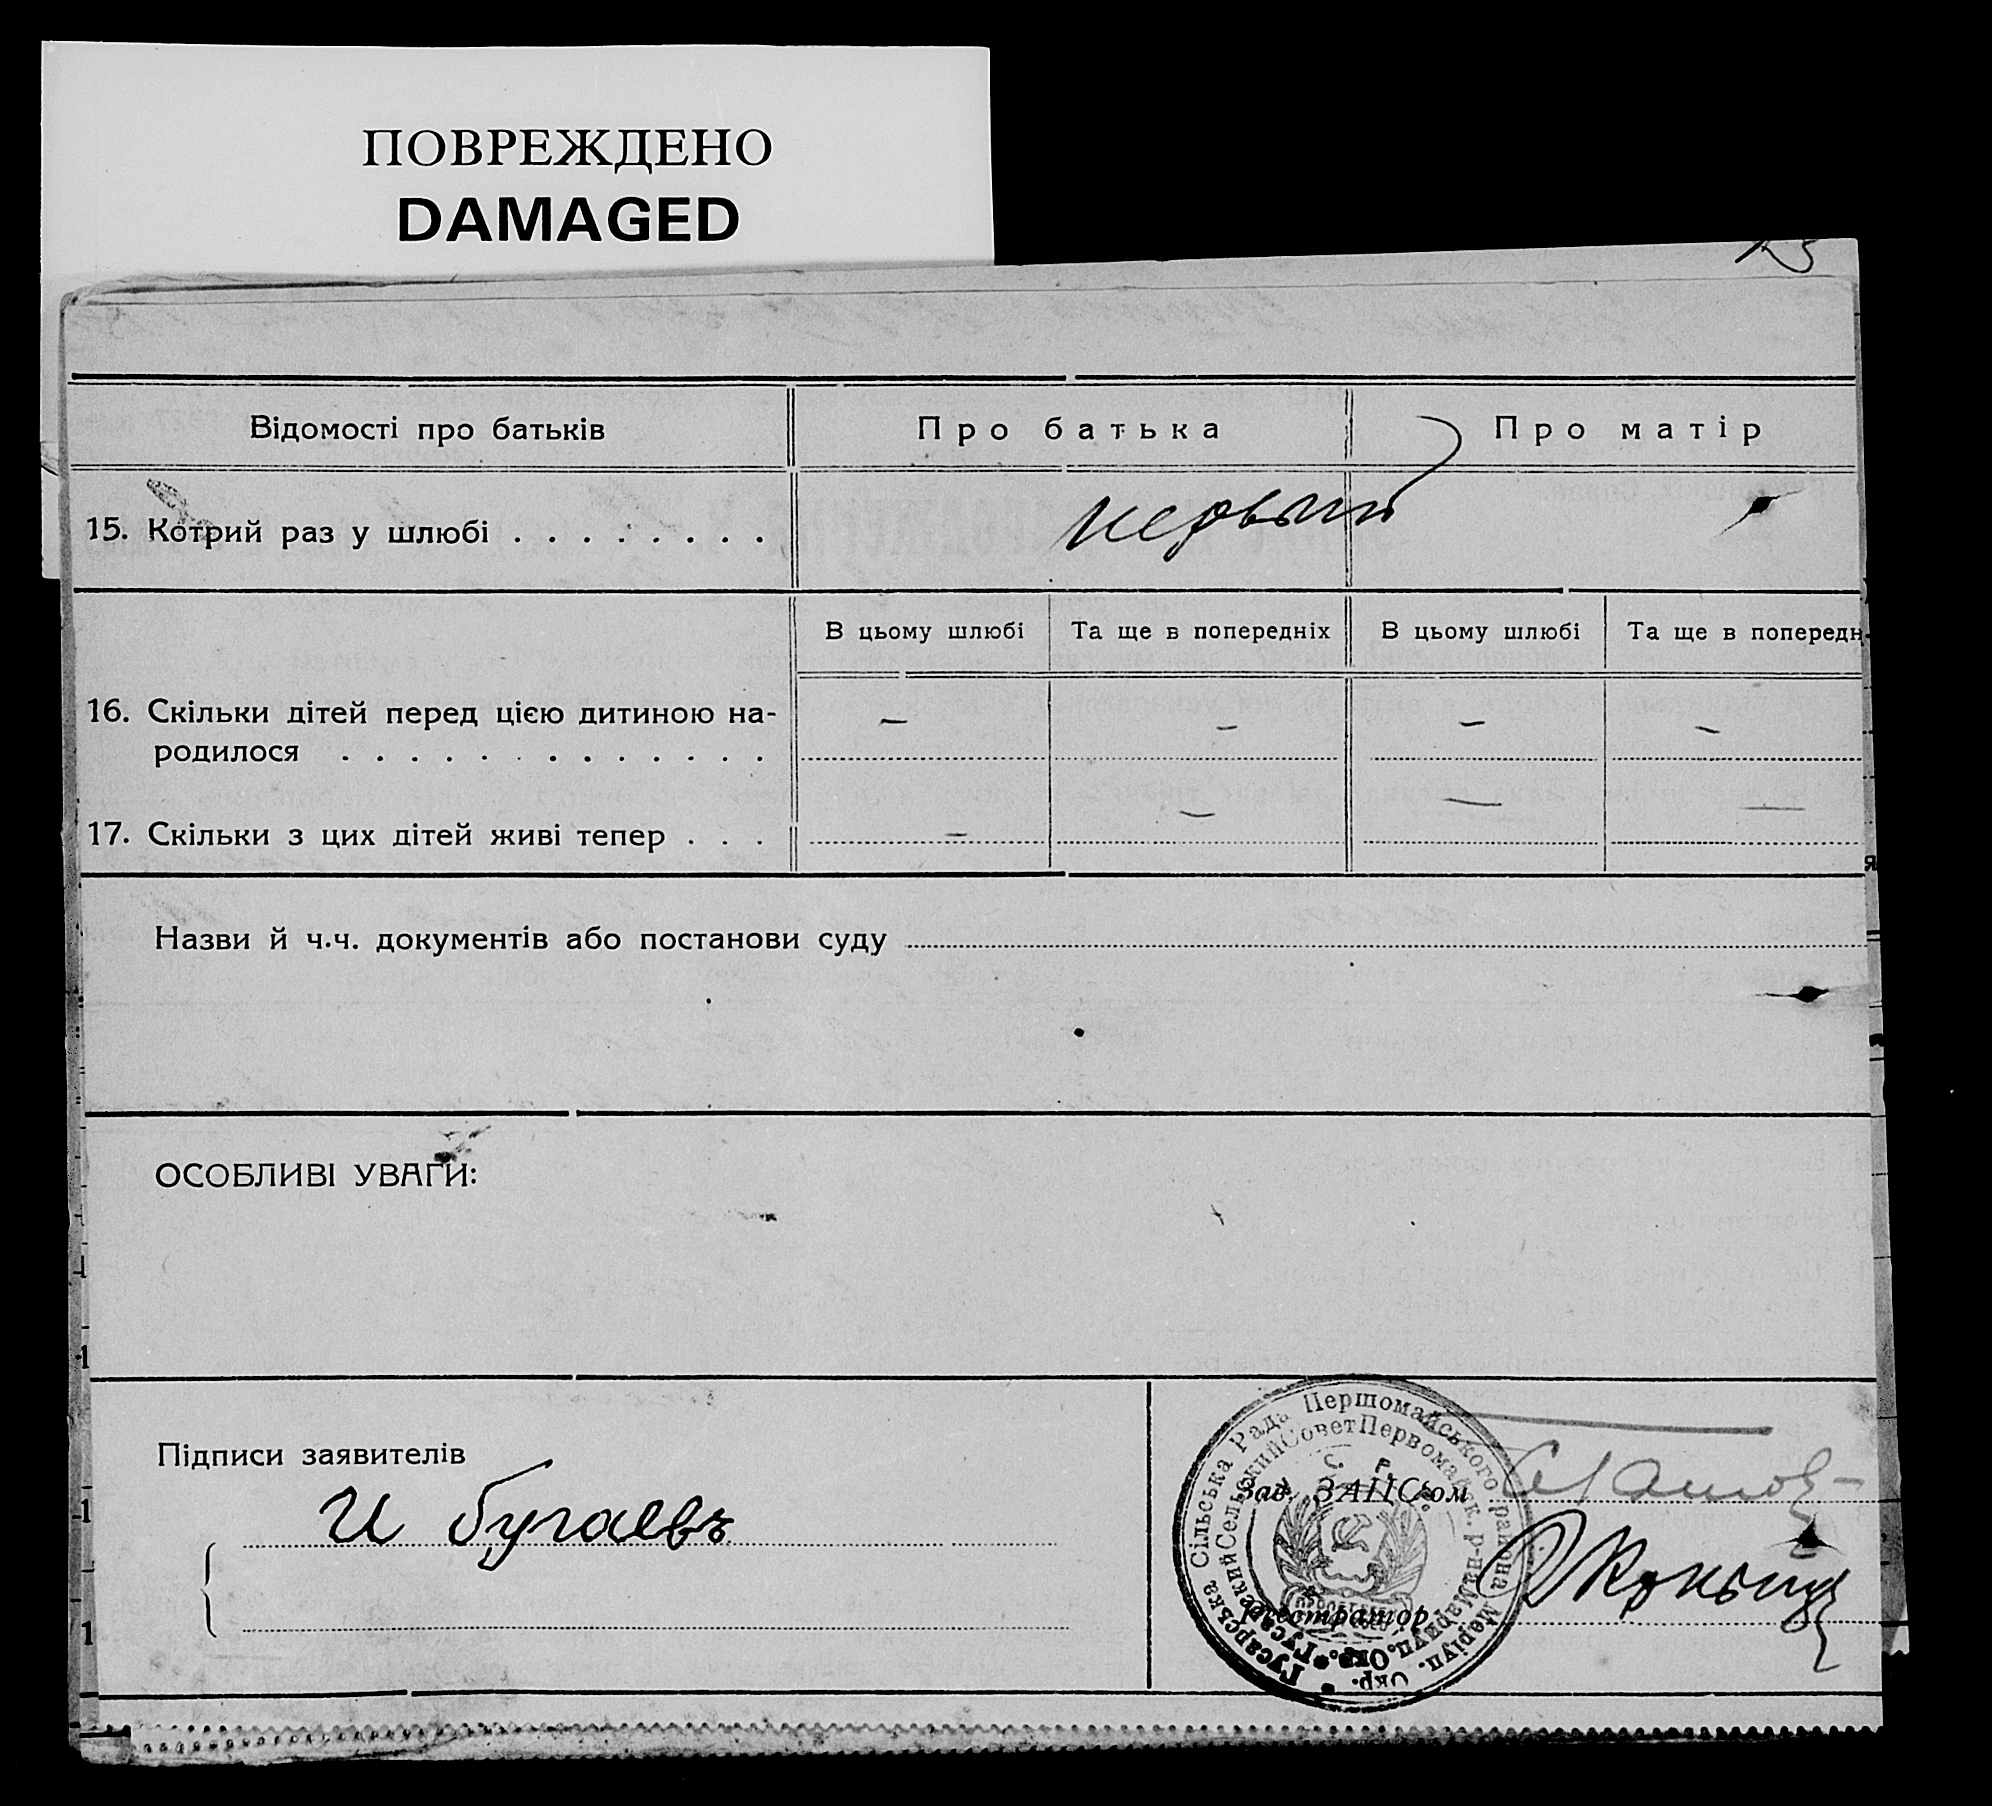 ПОВРЕЖДЕНО
DAMAGED
Відомості про батьків
Про батька
Про матір
15. Котрий раз у шлюбі . . . . . . . .
первый
В цьому шлюбі
Та ще в попередніх
В цьому шлюбі
Та ще в попередн
16. Скільки дітей перед цією дитиною на-
родилося . . . . . . . . . . . . .
– – – –
17. Скільки з цих дітей живі тепер . . .
– – – –
Назви й ч.ч. документів або постанови суду
ОСОБЛИВІ УВАГИ:
Підписи заявителів
И Бугаевъ
Зав. ЗАПС'ом
Реєстратор
Гусарська Сільська Рада Першомайського района Маріуп. Окр.
Гусарский Сельский Совет Первомайск. р-на Мариуп. Окр.
У. С. Р. Р.